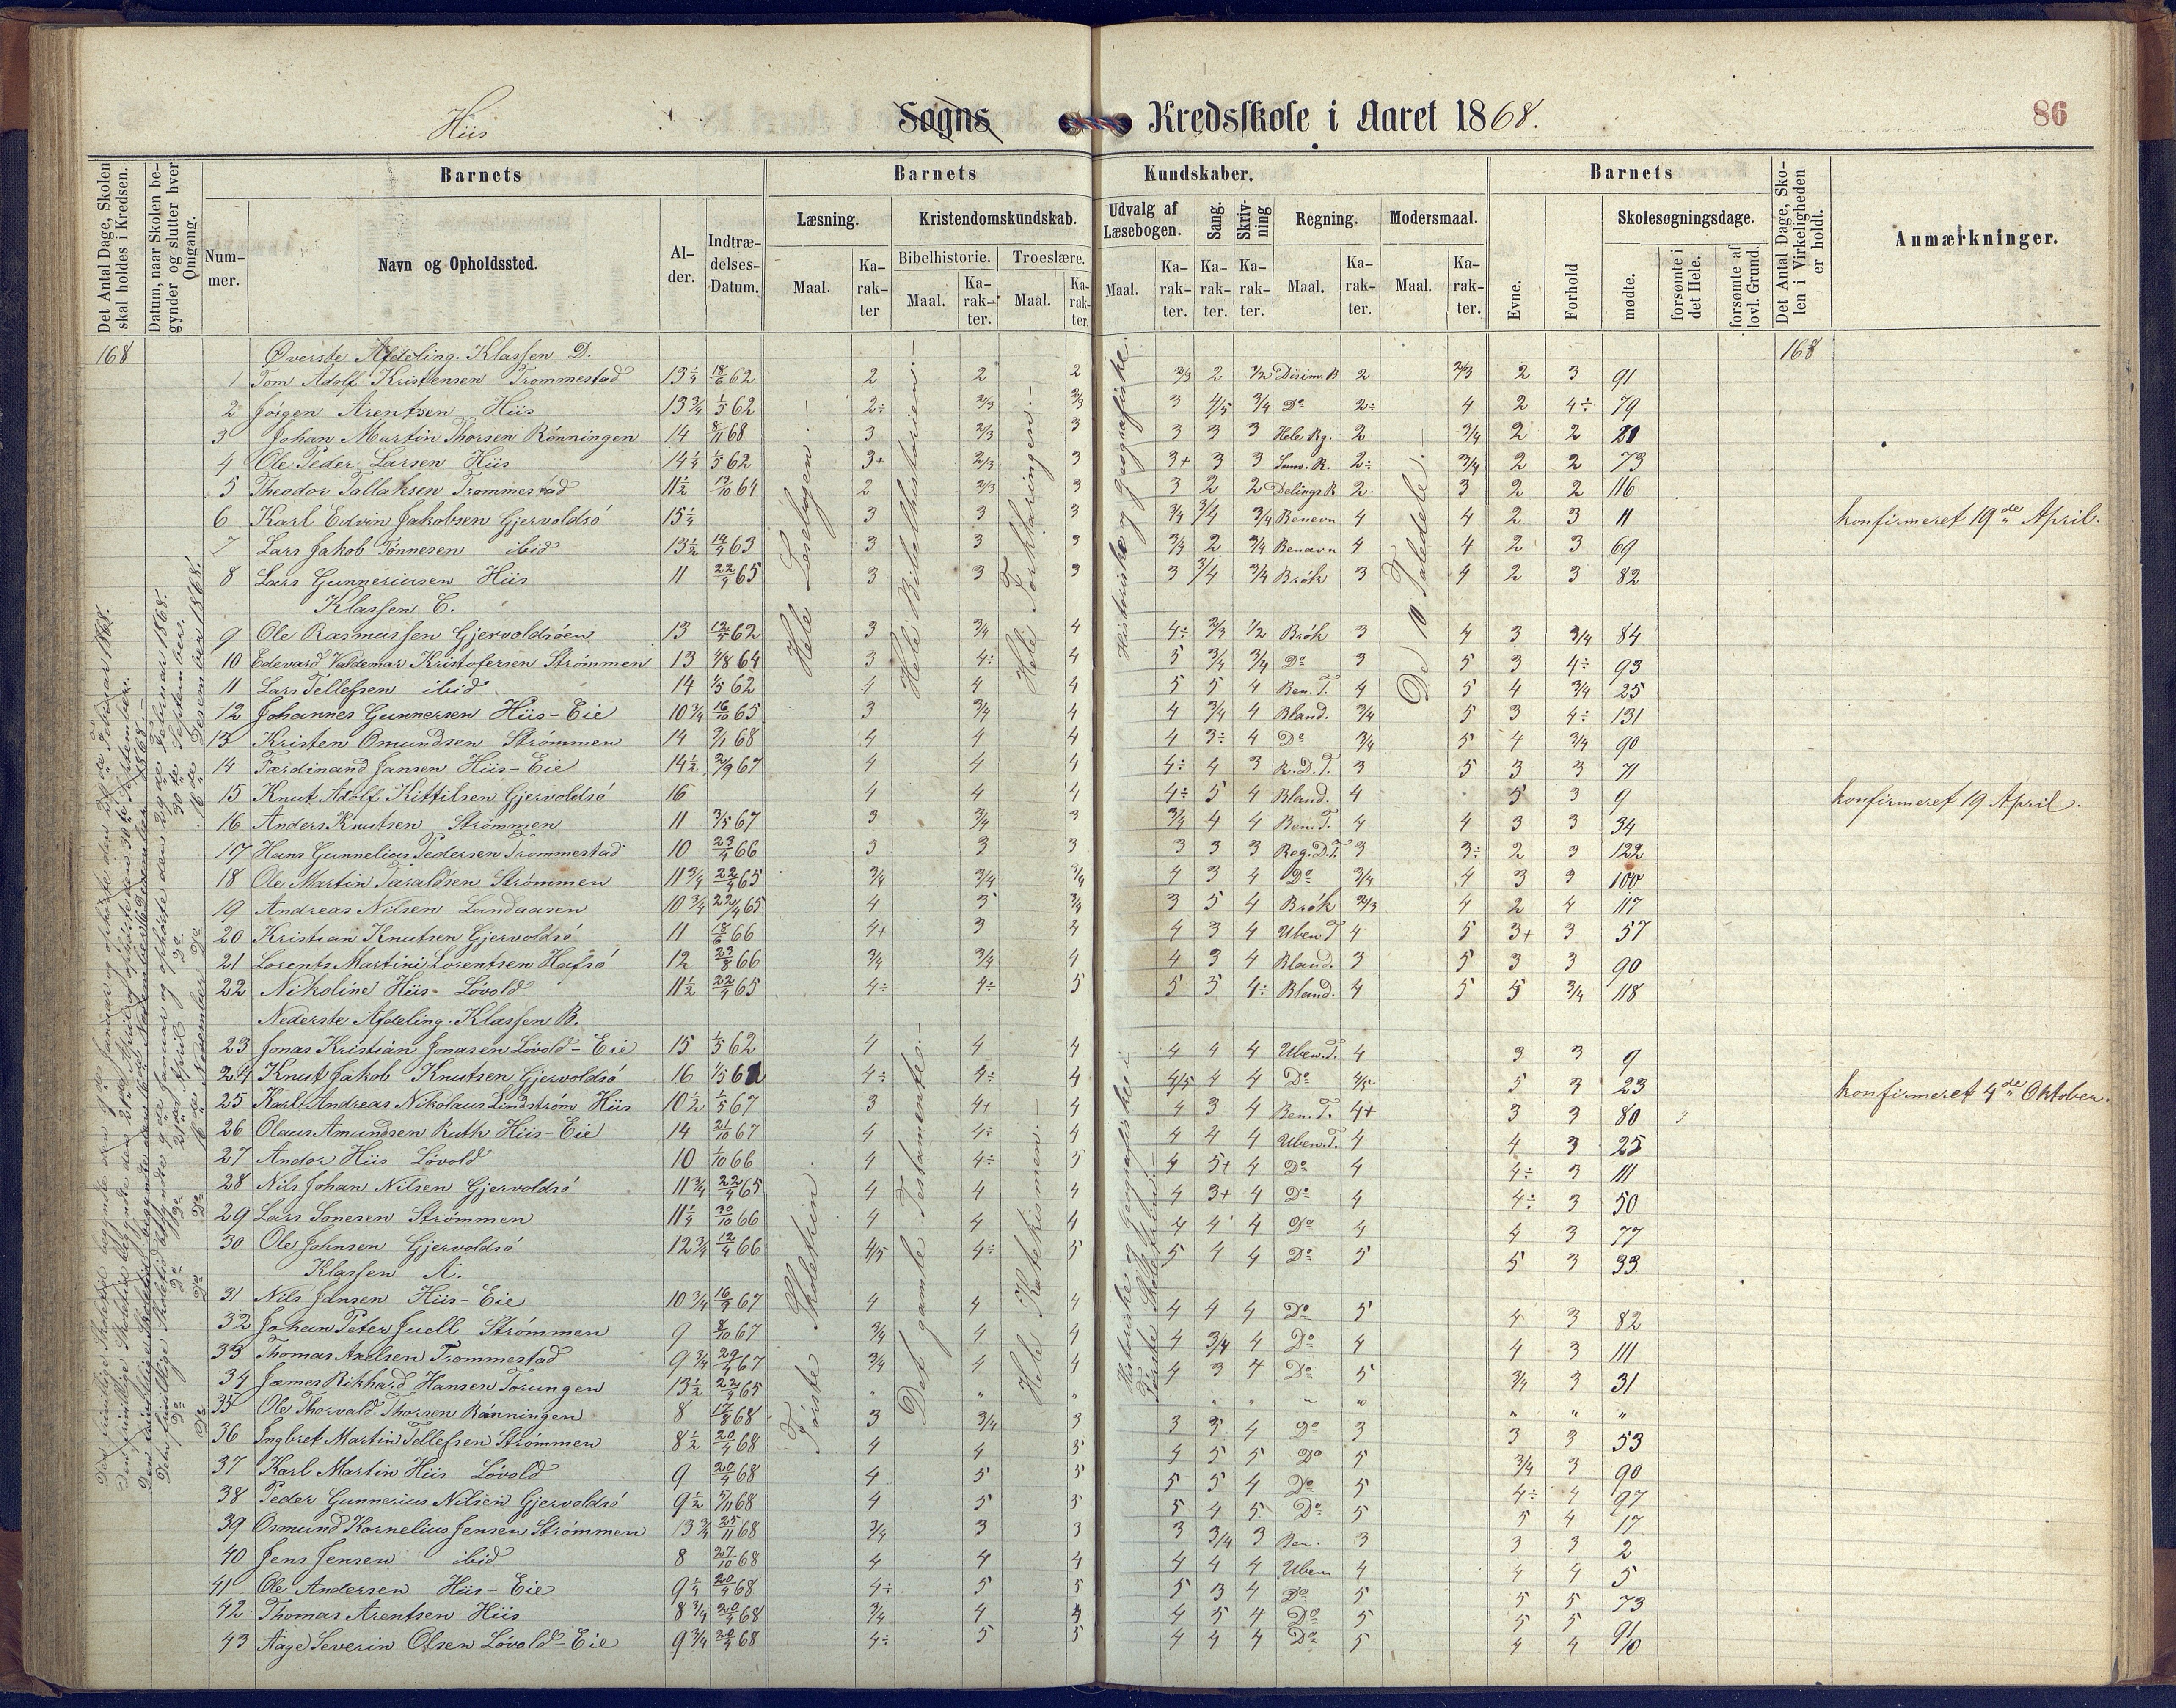 Hiis Sogns Kredsskole i Aaret 1868.
86
Det Antal Dage, Skolen skal holdes i Kredsen.
Datum, naar Skolen begynder og slutter hver Omgang.
Barnets
Barnets Kundskaber.
Barnets
Det Antal Dage, Skolen i Virkeligheden er holdt.
Anmærkninger.
Nummer.
Navn og Opholdssted.
Alder.
Indtrædelses-Datum.
Læsning.
Kristendomskundskab.
Udvalg af Læsebogen.
Sang.
Skrivning
Regning.
Modersmaal.
Evne.
Forhold
Skolesøgningsdage.
Bibelhistorie.
Troeslære.
Maal.
Karakter
Maal.
Karakter.
Maal.
Karakter.
Maal.
Karakter.
Karakter.
Karakter.
Maal.
Karakter.
Maal.
Karakter.
mødte.
forsømte i det Hele.
forsømte af lovl. Grund.
168 Øverste Afdeling. Klassen D. 168
1 Tom Adolf Kristensen Trommestad 13¼ 18/6 62 2 2 2 2/3 2 Disim. R 2 2/3 2 3 91
2 Jörgen Arentsen Hiis 13¾ 1/5 62 2÷ 2/3 2/3 3 4/5 3/4 Do 2÷ 4 2 4÷ 79
3 Johan Martin Thorsen Rönningen 14 8/11 68 3 2/3 3 3 3 3 Hele Rg. 2 3/4 2 2 21
4 Ole Peder Larsen Hiis 14¼ 1/5 62 3+ 2/3 3 3+ 3 3 2÷ 3/4 2 2 73
5 Theodor Tallaksen Trommestad 11½ 64 2 2/3 3 3 2 2 Delings R 2 3 2 2 116
6 Karl Edvin Jakobsen Gjervoldsö 15¼ 3 3 3 3/4 3/4 3/4 Benevn 4 4 2 3 11 konfirmeret 19de April.
7 Lars Jakob Tönnesen ibid 13½ 63 3 3 3 3/4 2 3/4 Benævn 4 4 2 3 69
8 Lars Gunneriusen Hiis 11 22/4 65 3 3 3 3 3/4 3/4 Brök 3 4 2 3 82
Klassen C.
9 Ole Rasmussen Gjervoldsöen 13 62 3 3/4 4 4÷ 2/3 1/2 Brök 3 4 3 3/4 84
10 Edevard Valdemar Kristofersen Strömmen 13 4/8 64 3 4÷ 4 5 3/4 3/4 Do 3 5 3 4÷ 93
11 Lars Tellefsen ibid 14 1/5 62 4 4 4 5 5 4 Ben. T. 4 5 4 3/4 25
12 Johannes Gunnersen Hiis-Eie 10¾ 16/10 65 3 3/4 4 4 3/4 4 Bland. 3/4 5 3 4÷ 131
13 Kristen Omundsen Strömmen 14 68 4 4 4 4 3÷ 4 Do 3/4 5 4 3/4 90
14 Færdinand Jansen Hiis-Eie 14½ 2/9 67 4 4 4 4÷ 4 3 R.D.T. 3 5 3 3 71
15 Knut Adolf Kittilsen Gjervoldsö 16 4 4 4 4÷ 5 4 Bland. 4 5 3 9 konfirmeret 19 April.
16 Anders Knutsen Strömmen 11 3/5 67 3 3/4 3 3/4 4 4 Ben. T. 4 4 3 3 34
17 Hans Gunnelius Pedersen Trommestad 10 23/4 66 3 3 3 3 3 3 Reg. D.T. 3 3÷ 2 3 122
18 Ole Martin Taraldsen Strömmen 11¾ 22/4 65 3/4 3/4 3/4 4 3 4 Do 3/4 4 3 3 100
19 Andreas Nilsen Lundaasen 10¾ 22/4 65 4 3 3/4 3 5 4 Brök 2/3 4 2 4 117
20 Kristian Knutsen Gjervoldsö 11 18/6 66 4+ 3 4 4 3 4 Uben T 4 5 3+ 3 57
21 Lorents Martini Lorentsen Hafsö 12 23/8 66 3/4 3/4 4 4 3 4 Bland. 3 5 3 3 90
22 Nikoline Hiis-Lövold 11½ 22/4 65 4÷ 4÷ 5 5 5 4÷ Bland. 4 5 5 3/4 118
Nederste Afdeling. Klassen B.
23 Jonas Kristian Jonasen Lövold-Eie 15 1/5 62 4 4 4 4 4 4 Uben. T. 4 3 3 9
24 Knut Jakob Knutsen Gjervoldsö 16 1/5 4÷ 4÷ 4 4/5 4 4 Do 5 3 23 konfirmeret 4de Oktober.
25 Karl Andreas Nikolaus Lindström Hiis 10½ 1/5 67 3 4+ 4 4 3 4 Ben. T. 4+ 3 3 80
26 Olaus Amundsen Ruth Hiis-Eie 14 21/10 67 4 4÷ 4 4 4 4 Uben. T. 4 4 3 25
27 Andor Hiis Lövold 10 1/10 66 4 4÷ 5 4 5+ 4 Do 4 4÷ 3 111
28 Nils Johan Nilsen Gjervoldsö 11¾ 22/4 65 4 4 4 4 3+ 4 Do 4 4÷ 3 50
29 Lars Sonesen Strömmen 11¼ 30/10 66 4 4 4 4 4 4 Do 4 4 3 77
30 Ole Johnsen Gjervoldsö 12¾ 12/4 66 4/5 4÷ 5 5 4 4 Do 5 5 3 33
Klassen A.
31 Nils Jansen Hiis-Eie 10¾ 16/9 67 4 4 4 4 4 4 Do 5 4 3 82
32 Johan Peter Juell Strömmen 9 8/10 67 3/4 4 4 4 3/4 4 Do 4 4 3 111
33 Thomas Axelsen Trommestad 9¾ 29/4 67 3/4 4 4 4 3 4 Do 5 3/4 3 31
34 James Rikhard Hansen Torungen 13½ 22/4 65 " " " " " " " " " " "
35 Ole Thorvald Thorsen Rönningen 8 17/8 68 3 3/4 3 3 3 4 Do 3 3 3 53
36 Ingbret Martin Tellefsen Strömmen 8½ 20/4 68 4 4 5 4 5 5 Do 5 3/4 3 90
37 Karl Martin Hiis Lövold 9 20/4 68 4 5 5 5 5 4 Do 5 4÷ 4 97
38 Peder Gunnerius Nilsen Gjervoldsö 9½ 5/11 68 4 5 5 5 4 5 Do 5 5 4 17
39 Osmund Kornelius Jensen Strömmen 13¾ 25/11 68 3/4 3 3 3 3/4 3 Ben. 3 3 3 2
40 Jens Jensen ibid 8 27/10 68 4 4 4 4 4 4 Uben 4 4 4 5
41 Ole Andersen Hiis-Eie 9¼ 20/4 68 4÷ 5 5 5 3 4 Do 5 5 5 73
42 Thomas Arentsen Hiis 8¾ 20/4 68 3/4 4 4 4 5 4 Do 5 5 5 91
43 Aage Severin Olsen Lövold-Eie 9¾ 20/4 68 4÷ 5 5 4 4 4 Do 5 4 4
Hele Læsebogen.
Hele Bibelhistorien.
Hele Forklaringen.
Historiske og geografiske.
De 10 Taledele.
Förste Skoletrin.
Det gamle Testamente.
Hele Katekismen.
Historiske og geografiske i Förste Skoletrin.